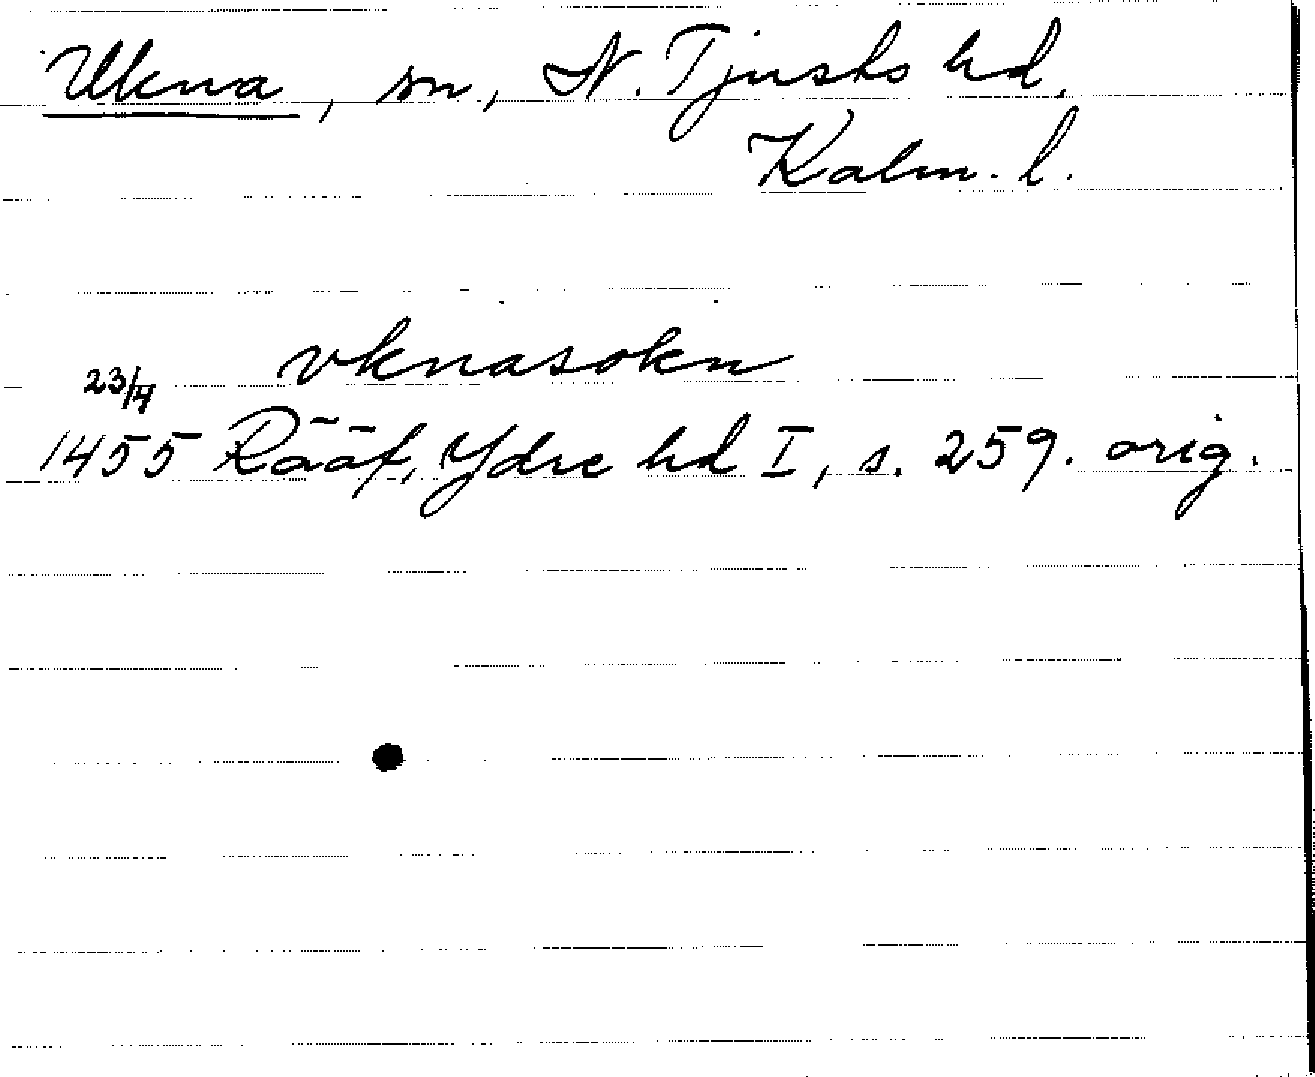 Ukna, sn, N. Tjusts hd,
Kalm. l.
vknasokn
23/4
1455 Rääf, Ydre hd I, s. 259. orig.